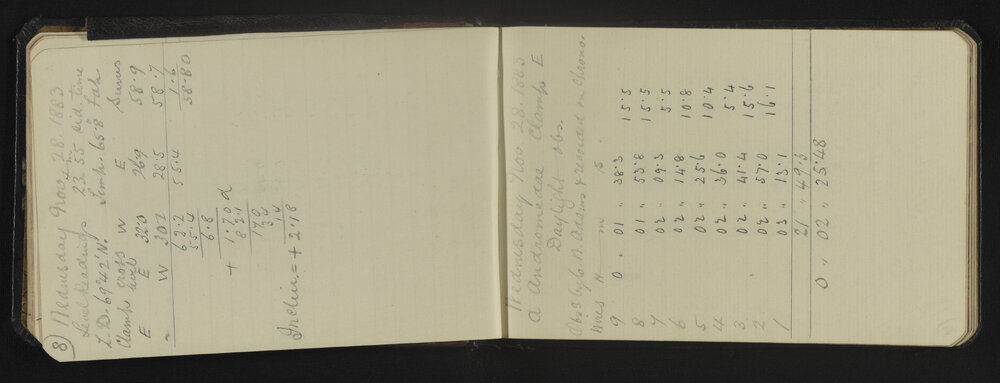 8) Wednesday Nov. 28. 1883
Level Readings 23h 55m sid. time
Z.D. 69°42' N. Temp. 65.8° Fah
Clamp cross level E W E Sums
E E 32.0 26.9 58.9
" W 30.2 28.5 58.7
62.2 55.4 1.6
55.4 58.80
6.8
+ 1.70 d
827
170
34
14
Inclin. = + 2".18
Wednesday Nov 28. 1883
α Andromedae Clamp E
Daylight obs.
Obs'd by C. A. Adams & recorded on Chrono.
Wires H m s
9 0 " 01 " 38.3 15.5
8 01 " 53.8 15.5
7 02 " 09.3 5.5
6 02 " 14.8 10.8
5 02 " 25.6 10.4
4 02 " 36.0 5.4
3 02 " 41.4 15.6
2 02 " 57.0 16.1
1 03 " 13.1
21 " 49.3
0 " 02 " 25.48